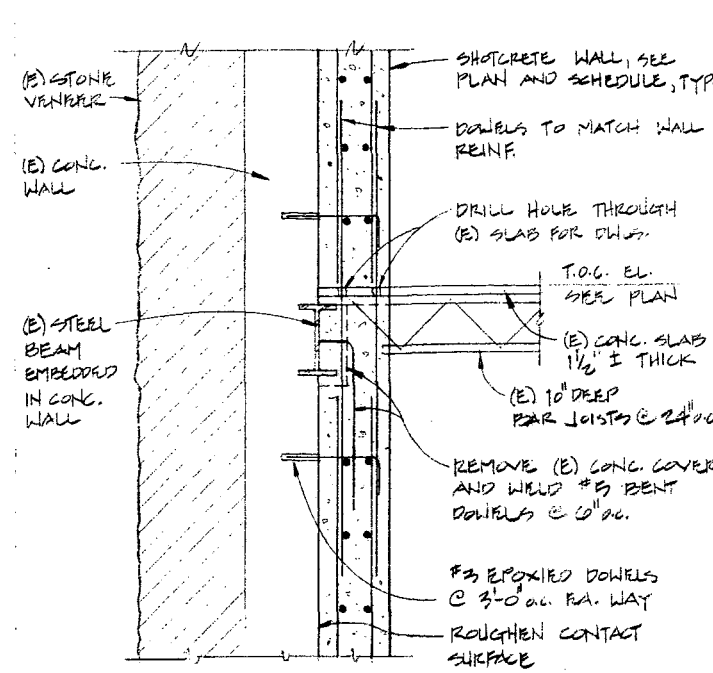 (E) STONE
VENEER
(E) CONC.
WALL
(E) STEEL
BEAM
EMBEDDED
IN CONC.
WALL
SHOTCRETE WALL, SEE
PLAN AND SCHEDULE, TYP
DOWELS TO MATCH WALL
REINF.
DRILL HOLE THROUGH
(E) SLAB FOR DWLS.
T.O.C. EL.
SEE PLAN
(E) CONC. SLAB
1 1/2" ± THICK
(E) 10" DEEP
BAR JOISTS @ 24" o.c
REMOVE (E) CONC. COVER
AND WELD #5 BENT
DOWELS @ 6" o.c.
#3 EPOXIED DOWELS
@ 3'-0" o.c. EA. WAY
ROUGHEN CONTACT
SURFACE